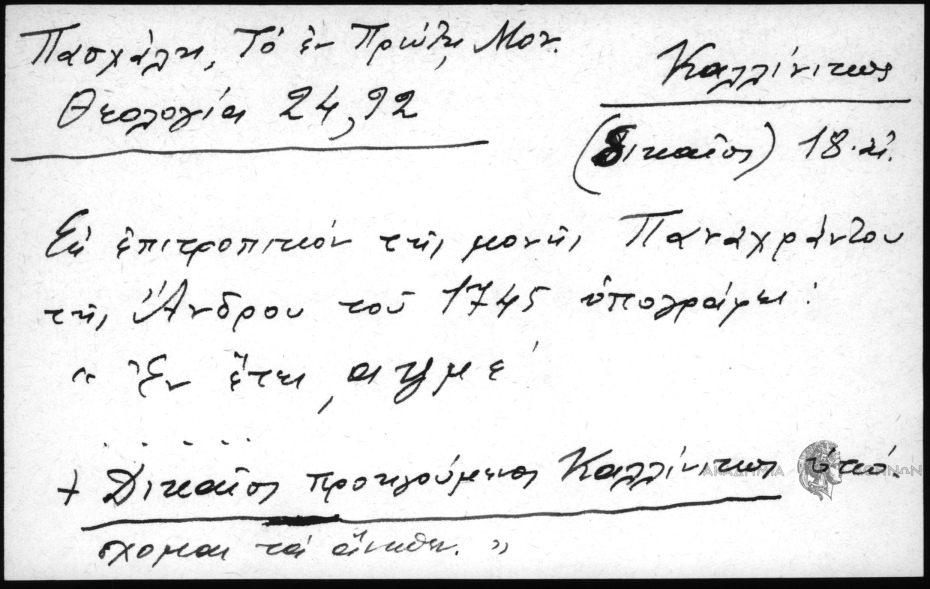 Πασχάλη, Τό ἐν Πρώτῃ Μον.
Θεολογία 24,92
Καλλίνικος
(δικαῖος) 18. αἰ.
Εἰς ἐπιτροπικόν τῆς μονῆς Παναχράντου
τῆς Ἄνδρου τοῦ 1745 ὑπογράφει:
" Ἐν ἔτει ͵αψμε΄
. . . . . .
+ Δικαῖος προηγούμενος Καλλίνικος ὑπό.
σχομαι τά ἄνωθεν. "
ΑΚΑΔΗΜΙΑ ΑΘΗΝΩΝ